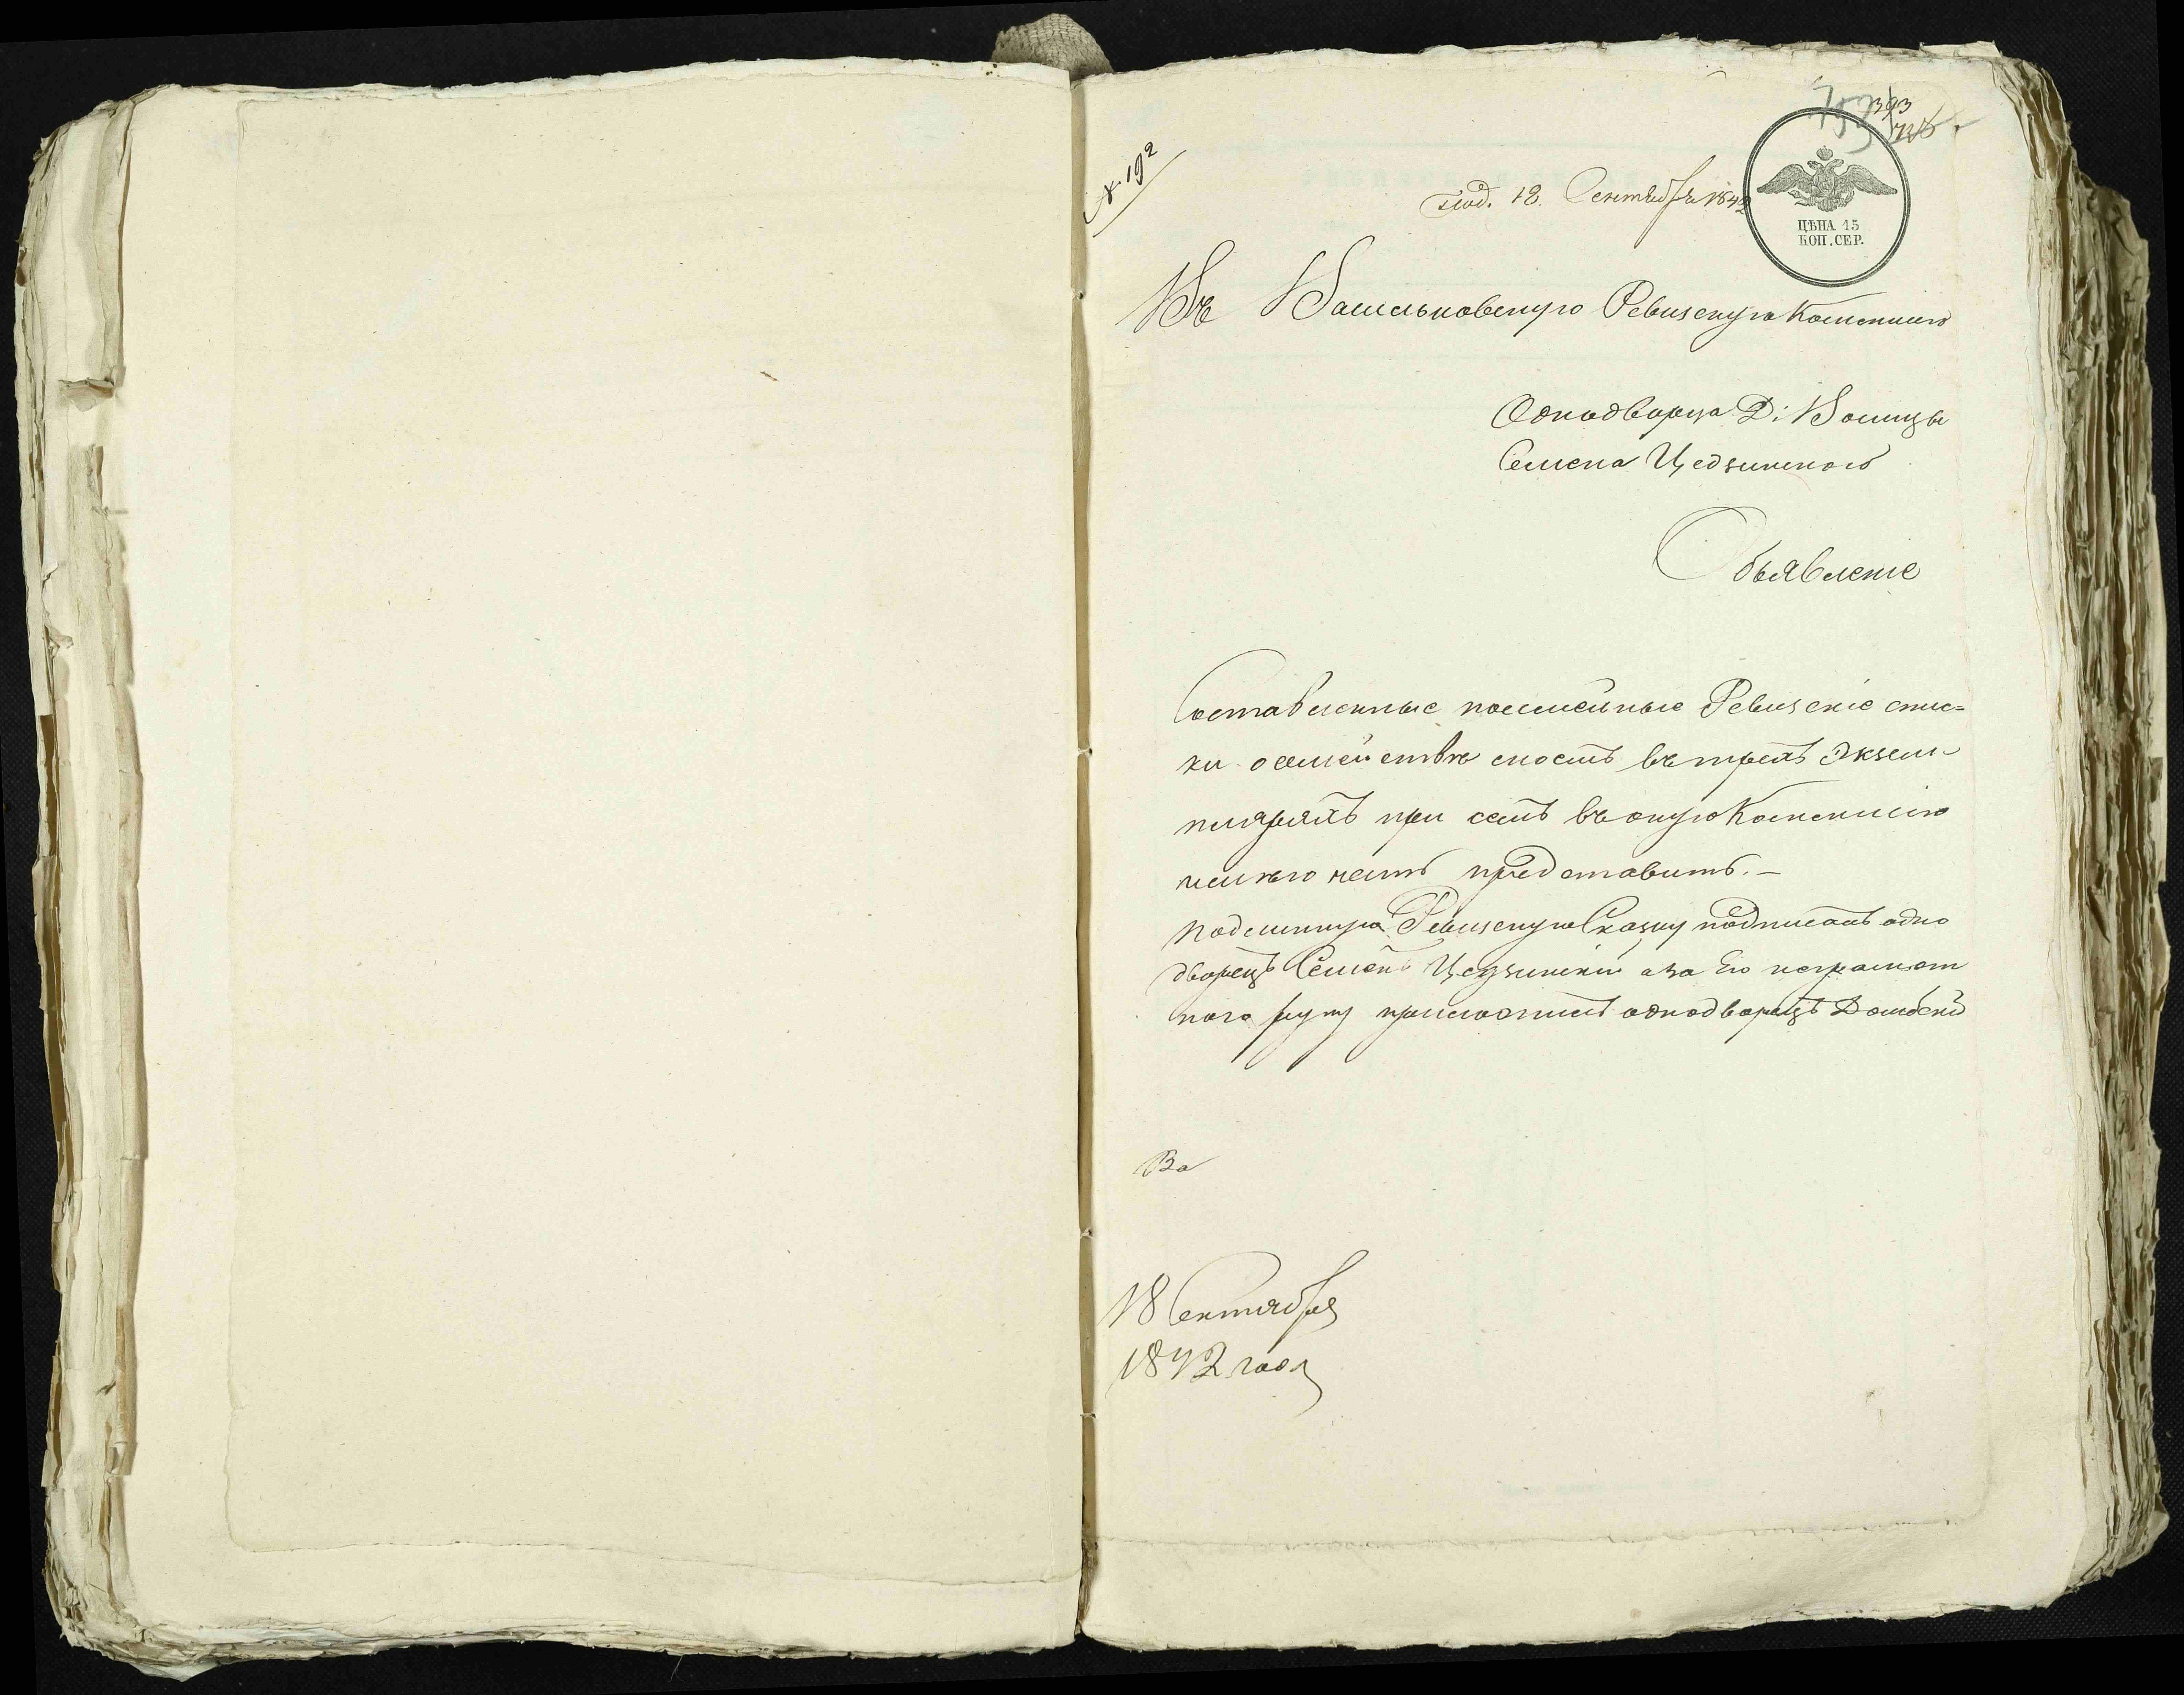 393
№ 192
под. 18. Сентября 1842
ЦѢНА 15
КОП. СЕР.
Въ Васильковскую Ревизскую Коммисию
Однодворца Д: Волицы
Семена Цедзинского
Объявленіе
Составленные посемейные Ревизскіе спис=
ки о семействе моемъ въ трехъ Экзем-
плярахъ при семъ въ оную Коммисию
имею честь представить. —
подлинную Ревизскую Сказку подписалъ одно
дворецъ Семенъ Цедзинскій а за Его неграмот
ного руку приложилъ однодворецъ Домбскій
Ва
18 Сентября
1842 года